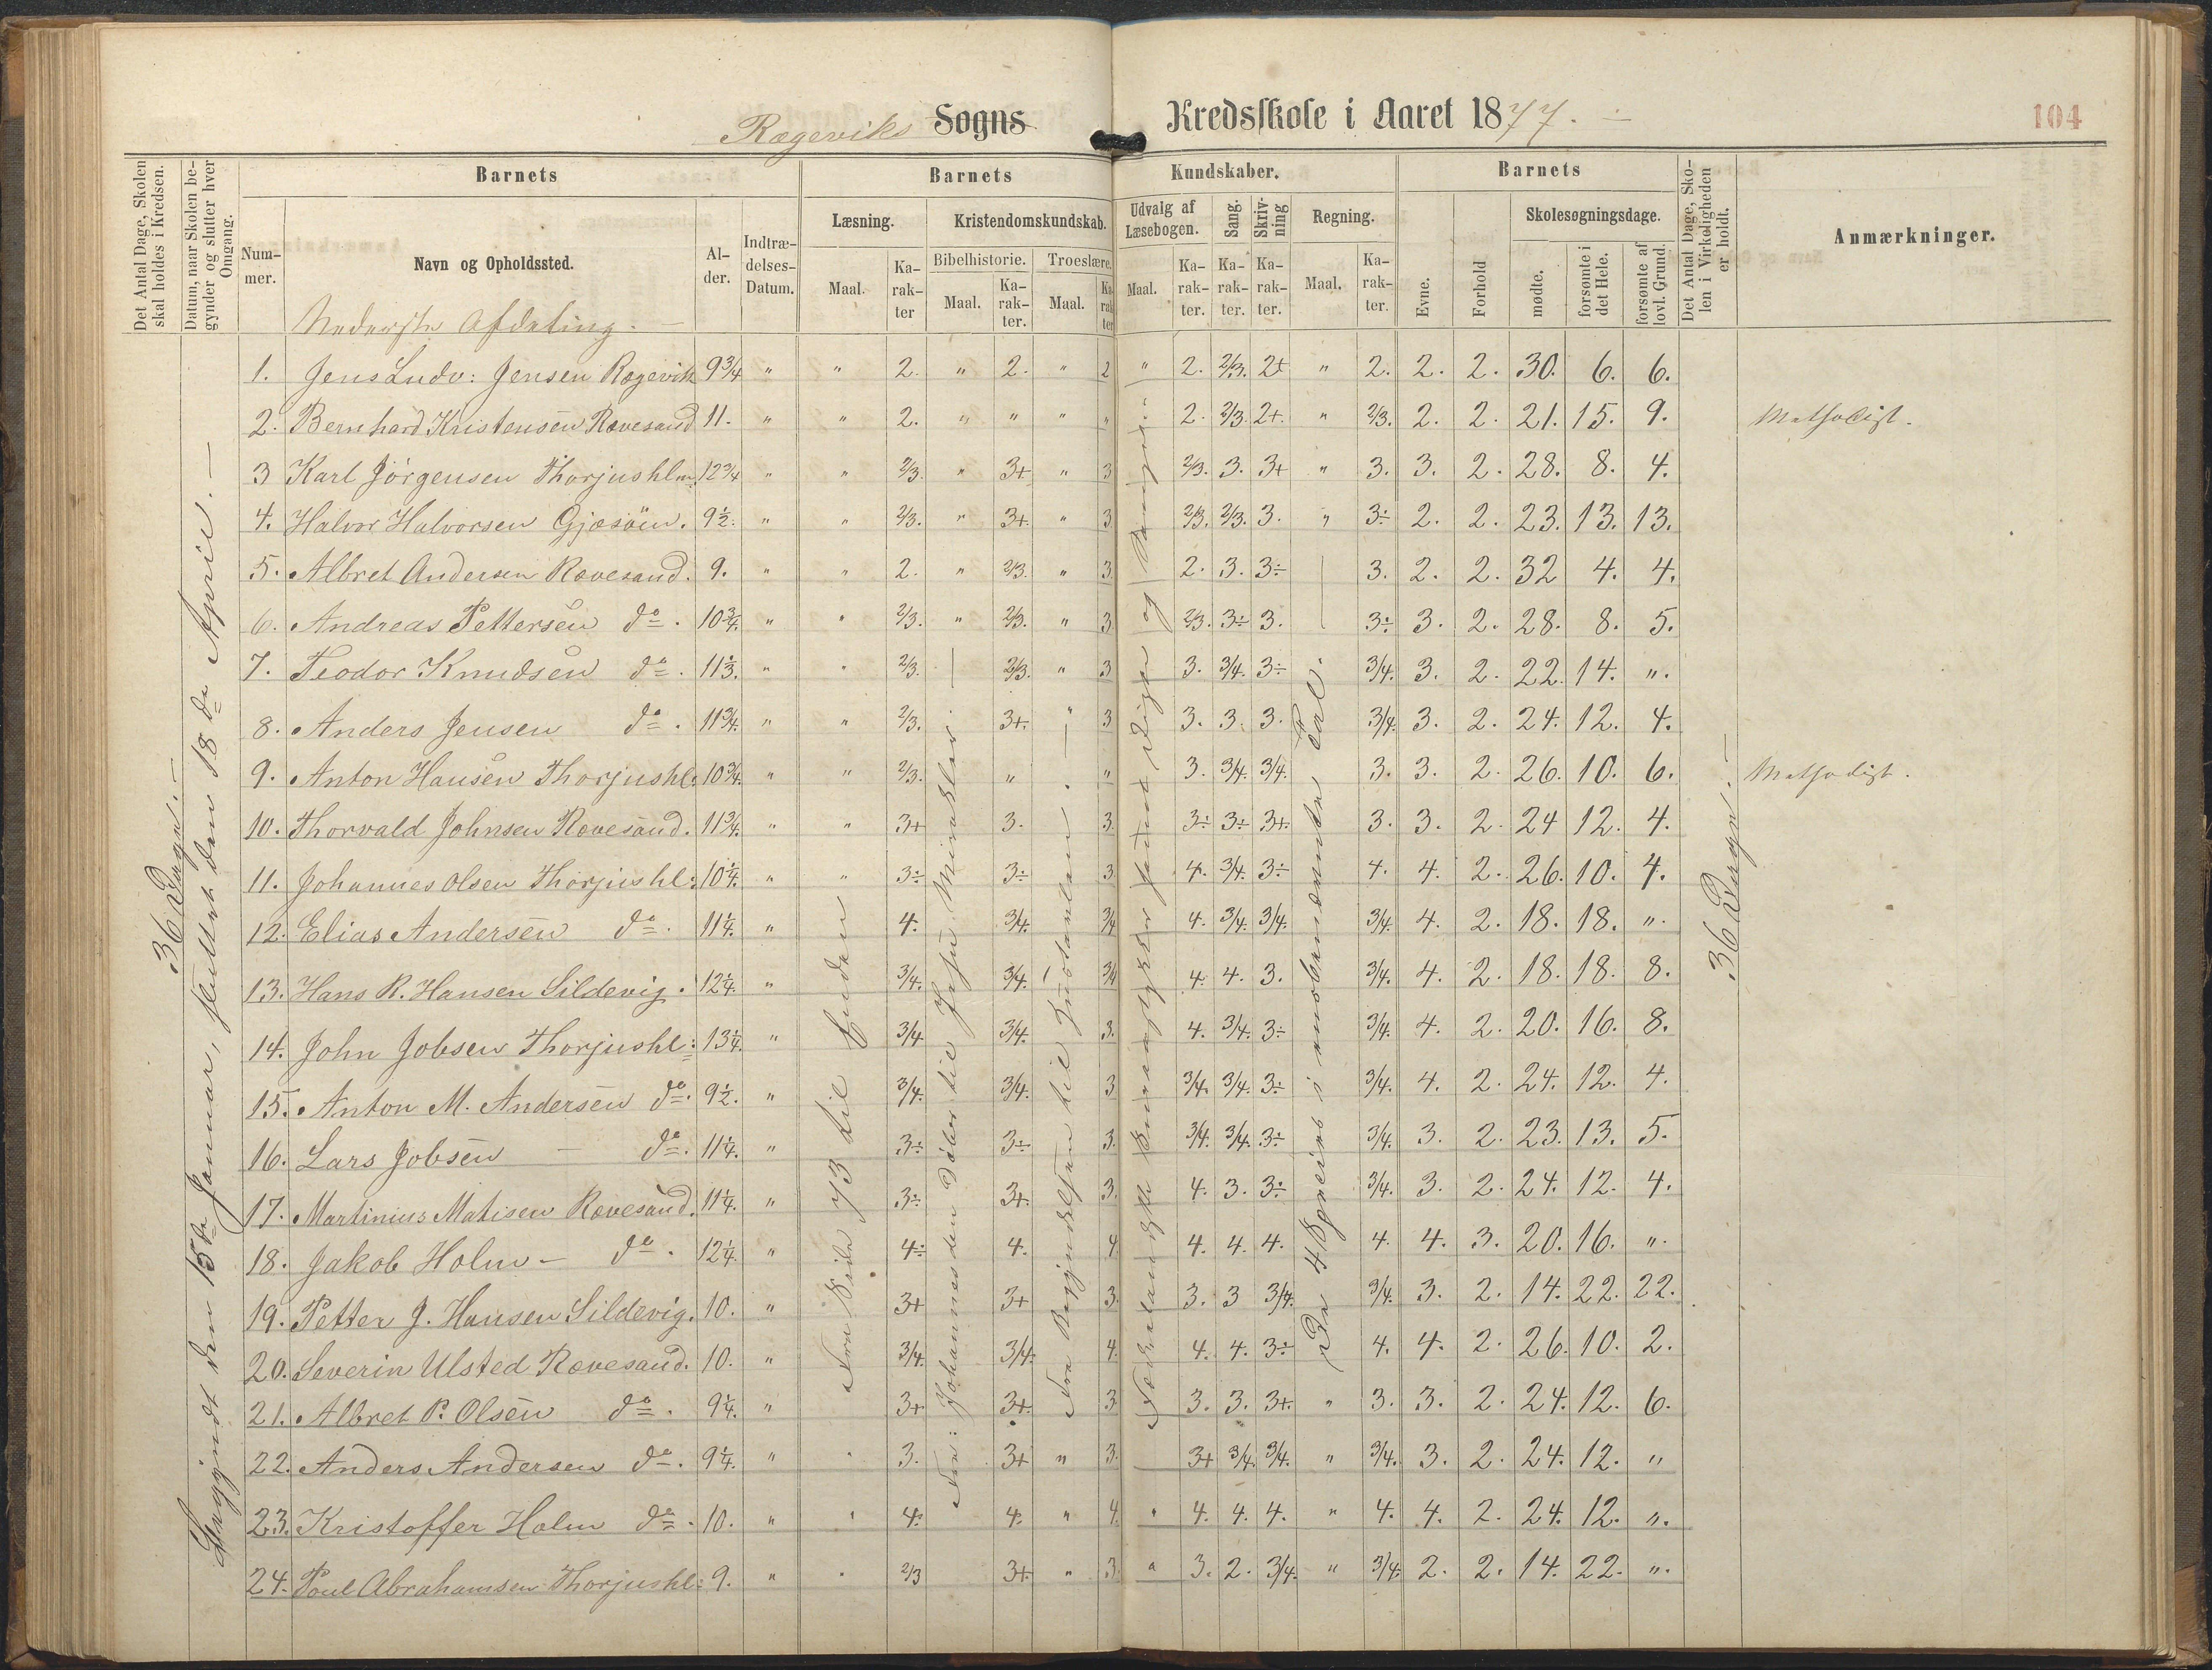 Rægeviks Sogns Kredsskole i Aaret 1877. 104
Det Antal Dage, Skolen skal holdes i Kredsen.
Datum, naar Skolen begynder og slutter hver Omgang.
Barnets
Barnets Kundskaber.
Barnets
Det Antal Dage, Skolen i Virkeligheden er holdt.
Anmærkninger.
Nummer.
Navn og Opholdssted.
Alder.
Indtrædelses-Datum.
Læsning.
Kristendomskundskab.
Udvalg af Læsebogen.
Sang.
Skrivning
Regning.
Evne.
Forhold
Skolesøgningsdage.
Bibelhistorie.
Troeslære.
Maal. Karakter Maal. Karakter. Maal. Karakter Maal. Karakter. Karakter. Karakter. Maal. Karakter.
mødte.
forsømte i det Hele.
forsømte af lovl. Grund.
Nederste Afdeling. —
36 Dage. —
Begyndt den 15de Januar, sluttet den 18de April. —
Fra Side 73 til Enden
Fra: Johannes den Døber til Jesu Mirakler.
Fra Begyndelsen til
De 4 Species i ubenævnte Tal.
36 Dage. —
1. Jens Ludv: Jensen Rægevik 9 3/4 " " 2. " 2. " 2 " 2. 2/3. 2+ " 2. 2. 2. 30. 6. 6.
2. Bernhard Kristensen Rævesand 11. " " 2. " " " " 2. 2/3. 2+. " 2/3. 2. 2. 21. 15. 9. Methodist.
3 Karl Jørgensen Thorjushlm: 12 3/4 " " 2/3. " 3+ " 3 2/3. 3. 3+ " 3. 3. 2. 28. 8. 4.
4. Halvor Halvorsen Gjæsöen. 9 1/2. " " 2/3. " 3+. " 3. 2/3. 2/3. 3. " 3÷ 2. 2. 23. 13. 13.
5. Albret Andersen Rævesand. 9. " " 2. " 2/3. " 3. 2. 3. 3÷ 3. 2. 2. 32 4. 4.
6. Andreas Pettersen do. 10 3/4. " " 2/3. " 2/3. " 3 2/3. 3÷ 3. 3÷ 3. 2. 28. 8. 5.
7. Teodor Knudsen do. 11 1/3. " " 2/3. 2/3. " 3 3. 3/4. 3÷ 3/4. 3. 2. 22. 14. ".
8. Anders Jensen do. 11 3/4. " " 2/3. 3+. " 3 3. 3. 3. 3/4. 3. 2. 24. 12. 4.
9. Anton Hansen Thorjushl: 10 3/4. " " 2/3. " " 3. 3/4. 3/4. 3. 3. 2. 26. 10. 6. Methodist.
10. Thorvald Johnsen Rævesand. 11 3/4. " " 3+ 3. 3. 3÷ 3÷ 3+. 3. 3. 2. 24 12. 4.
11. Johannes Olsen Thorjushl: 10 1/4. " " 3÷ 3÷ 3 4. 3/4. 3÷ 4. 4. 2. 26. 10. 4.
12. Elias Andersen do. 11 1/4. " 4. 3/4. 3/4 4. 3/4. 3/4. 3/4. 4. 2. 18. 18. ".
13. Hans R. Hansen Sildevig. 12 1/4. " 3/4. 3/4. 3/4 4. 4. 3. 3/4. 4. 2. 18. 18. 8.
14. John Jobsen Thorjushl: 13 1/4. " 3/4 3/4. 3. 4. 3/4. 3÷ 3/4. 4. 2. 20. 16. 8.
15. Anton M. Andersen do. 9 1/2. " 3/4. 3/4. 3 3/4. 3/4. 3÷ 3/4. 4. 2. 24. 12. 4.
16. Lars Jobsen — do. 11 1/4. " 3÷ 3÷ 3. 3/4. 3/4. 3÷ 3/4. 3. 2. 23. 13. 5.
17. Martinius Matisen Rævesand. 11 1/4. " 3÷ 3+. 3. 4. 3. 3÷ 3/4. 3. 2. 24. 12. 4.
18. Jakob Holm — do. 12 1/4. " 4÷ 4. 4 4. 4. 4. 4. 4. 3. 20. 16. ".
19. Petter J. Hansen Sildevig. 10. " 3+ 3+ 3. 3. 3 3/4. 3/4. 3. 2. 14. 22. 22.
20. Severin Ulsted Rævesand. 10. " 3/4. 3/4. 4. 4. 4. 3÷ 4. 4. 2. 26. 10. 2.
21. Albret P. Olsen do. 9 1/4. " 3+ 3+. 3 3. 3. 3+. " 3. 3. 2. 24. 12. 6.
22. Anders Andersen do. 9 1/4. " " 3. 3+ " 3. 3+ 3/4. 3/4. " 3/4. 3. 2. 24. 12. "
23. Kristoffer Holm do. 10. " " 4. 4. " 4. " 4. 4. 4. " 4. 4. 2. 24. 12. ".
24. Poul Abrahamsen Thorjushl: 9. " " 2/3 3+. " 3. " 3. 2. 3/4. " 3/4. 2. 2. 14. 22. ".